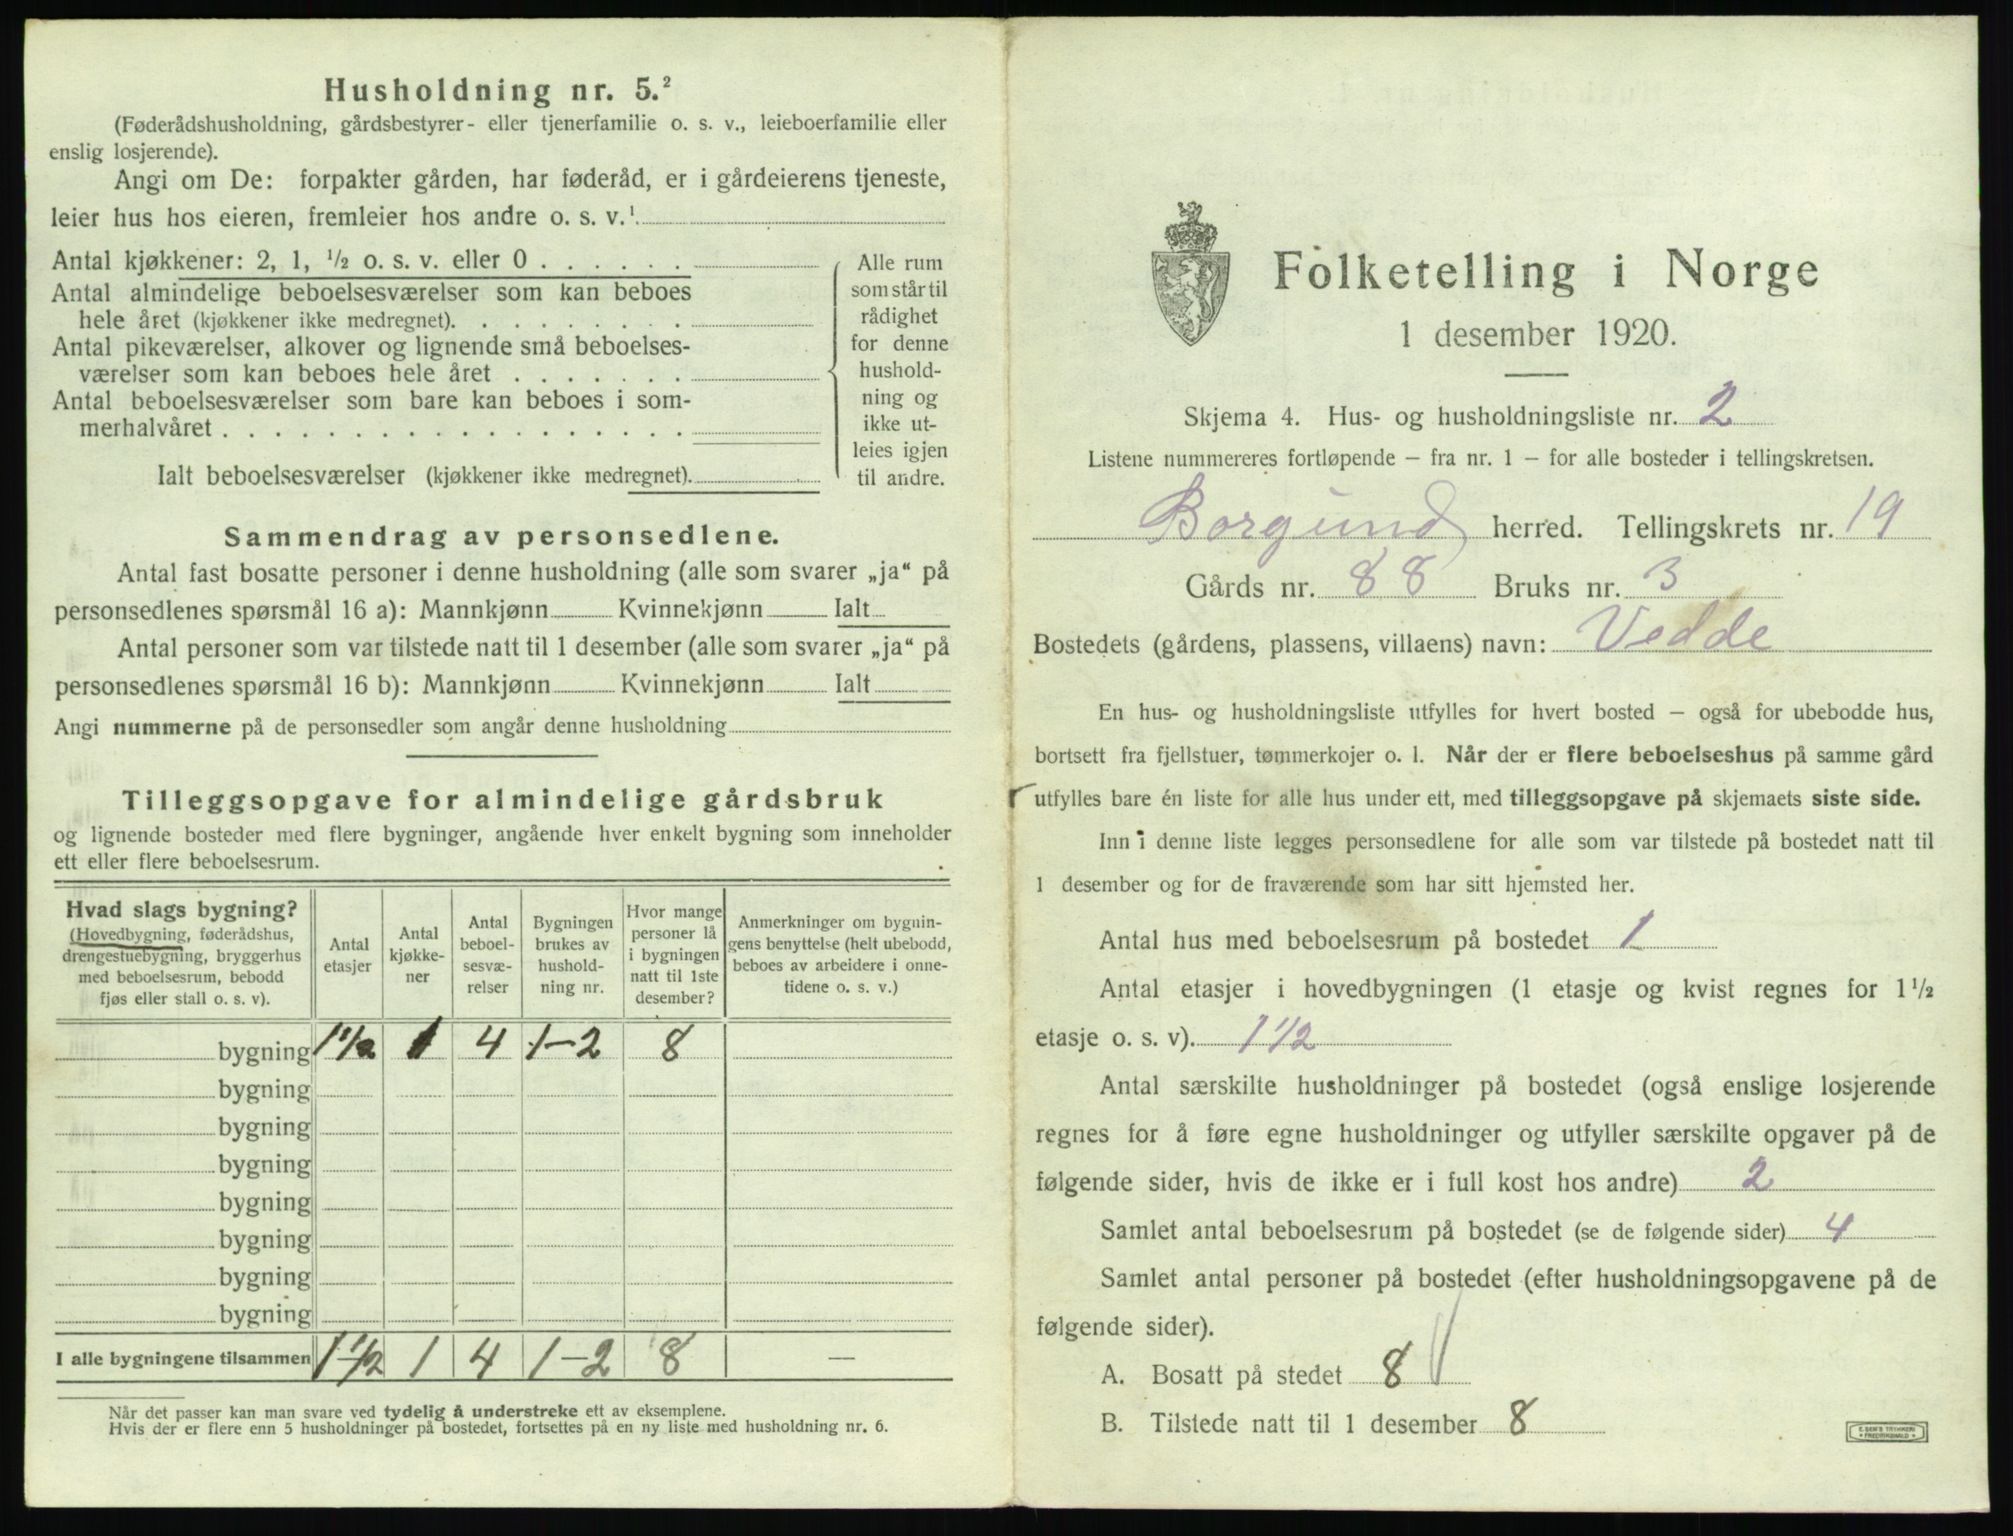 Husholdning nr. 5.²
(Føderådshusholdning, gårdsbestyrer- eller tjenerfamilie o. s. v., leieboerfamilie eller
enslig losjerende).
Angi om De: forpakter gården, har føderåd, er i gårdeierens tjeneste,
leier hus hos eieren, fremleier hos andre o. s. v.¹
Antal kjøkkener: 2, 1, ½ o. s. v. eller 0
Antal almindelige beboelsesværelser som kan beboes
hele året (kjøkkener ikke medregnet).
Antal pikeværelser, alkover og lignende små beboelses-
værelser som kan beboes hele året
Antal beboelsesværelser som bare kan beboes i som-
merhalvåret
Ialt beboelsesværelser (kjøkkener ikke medregnet).
Alle rum
som står til
rådighet
for denne
hushold-
ning og
ikke ut-
leies igjen
til andre.
Sammendrag av personsedlene.
Antal fast bosatte personer i denne husholdning (alle som svarer „ja“ på
personsedlenes spørsmål 16 a): Mannkjønn Kvinnekjønn Ialt
Antal personer som var tilstede natt til 1 desember (alle som svarer „ja“ på
personsedlenes spørsmål 16 b): Mannkjønn Kvinnekjønn Ialt
Angi nummerne på de personsedler som angår denne husholdning
Tilleggsopgave for almindelige gårdsbruk
og lignende bosteder med flere bygninger, angående hver enkelt bygning som inneholder
ett eller flere beboelsesrum.
Hvad slags bygning?
(Hovedbygning, føderådshus,
drengestuebygning, bryggerhus
med beboelsesrum, bebodd
fjøs eller stall o. s. v).
Antal
etasjer
Antal
kjøkke-
ner
Antal
beboel-
sesvæ-
relser
Bygningen
brukes av
hushold-
ning nr.
Hvor mange
personer lå
i bygningen
natt til 1ste
desember?
Anmerkninger om bygnin-
gens benyttelse (helt ubebodd,
beboes av arbeidere i onne-
tidene o. s. v.)
bygning 1 1/2 1 4 1-2 8
bygning
bygning
bygning
bygning
bygning
bygning
bygning
I alle bygningene tilsammen 1 1/2 1 4 1-2 8 —
Når det passer kan man svare ved tydelig å understreke ett av eksemplene.
Hvis der er flere enn 5 husholdninger på bostedet, fortsettes på en ny liste med husholdning nr. 6.
Folketelling i Norge
1 desember 1920.
Skjema 4. Hus- og husholdningsliste nr. 2
Listene nummereres fortløpende – fra nr. 1 – for alle bosteder i tellingskretsen.
Borgund herred. Tellingskrets nr. 19
Gårds nr. 88 Bruks nr. 3
Bostedets (gårdens, plassens, villaens) navn: Vedde
En hus- og husholdningsliste utfylles for hvert bosted – også for ubebodde hus,
bortsett fra fjellstuer, tømmerkojer o. l. Når der er flere beboelseshus på samme gård
utfylles bare én liste for alle hus under ett, med tilleggsopgave på skjemaets siste side.
Inn i denne liste legges personsedlene for alle som var tilstede på bostedet natt til
1 desember og for de fraværende som har sitt hjemsted her.
Antal hus med beboelsesrum på bostedet 1
Antal etasjer i hovedbygningen (1 etasje og kvist regnes for 1½
etasje o. s. v). 1 1/2
Antal særskilte husholdninger på bostedet (også enslige losjerende
regnes for å føre egne husholdninger og utfyller særskilte opgaver på de
følgende sider, hvis de ikke er i full kost hos andre) 2
Samlet antal beboelsesrum på bostedet (se de følgende sider) 4
Samlet antal personer på bostedet (efter husholdningsopgavene på de
følgende sider).
A. Bosatt på stedet 8
B. Tilstede natt til 1 desember 8
E. SEM'S TRYKKERI
FREDRIKSHALD